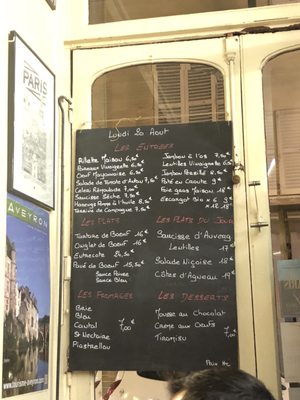 PARIS
AVEYRON
www.tourisme-aveyron
Lundi 20 Aout
LES ENTREES
Rillette Maison 6,50€
Poireaux Vinaigrette
Oeuf Mayonnaise
Salade de Tomate
Celeri Rémoulade
Saucisse Sèche
Harengs Pomme à l'huile
Terrine de Campagne
Jambon à l'os
Lentilles Vinaigrette
Jambon Persillé
Paté en Croute
Foie gras Maison 18€
Escargot
LES PLATS
Tartare de Boeuf 16€
Onglet de Boeuf 16€
Entrecote
Pavé de Boeuf
Sauce Poivre
Sauce Bleu
LES PLATS DU JOUR
Saucisse d'Auverg
Lentilles 17€
Salade Niçoise 18€
Côtes d'Agneau 19€
LES FROMAGES
Brie
Bleu
Cantal 7,00€
St Nectaire
LES DESSERTS
Mousse au Chocolat
Creme aux Oeufs 7,00€
Tiramisu
Prix Nt